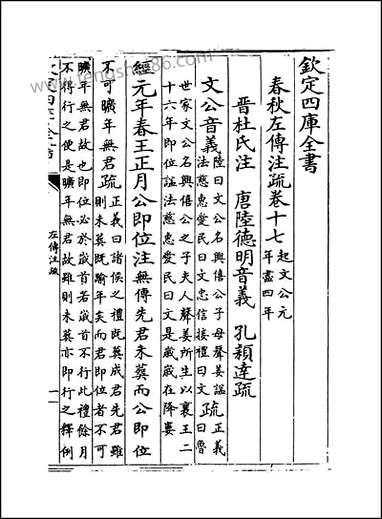 欽定四庫全書
春秋左傳注疏卷十七起文公元年盡四年
晉杜氏注 唐陸德明音義 孔穎達疏
文公音義陸曰文公名興僖公子母聲姜諡法慈惠愛民曰文忠信接禮曰文疏正義曰魯
世家文公名興僖公之子夫人聲姜所生以襄王二
十六年即位諡法慈惠愛民曰文是歲歲在降婁
經元年春王正月公即位注無傳先君未葬而公即位
不可曠年無君疏正義曰諸侯之禮既葬成君先君雖則未葬既踰年矣而君即位者不可
曠年無君故也即位必於歲首若歲首不行此禮餘月
不得行之便是曠年無君故雖則未葬亦即行之釋例
左傳注疏
一